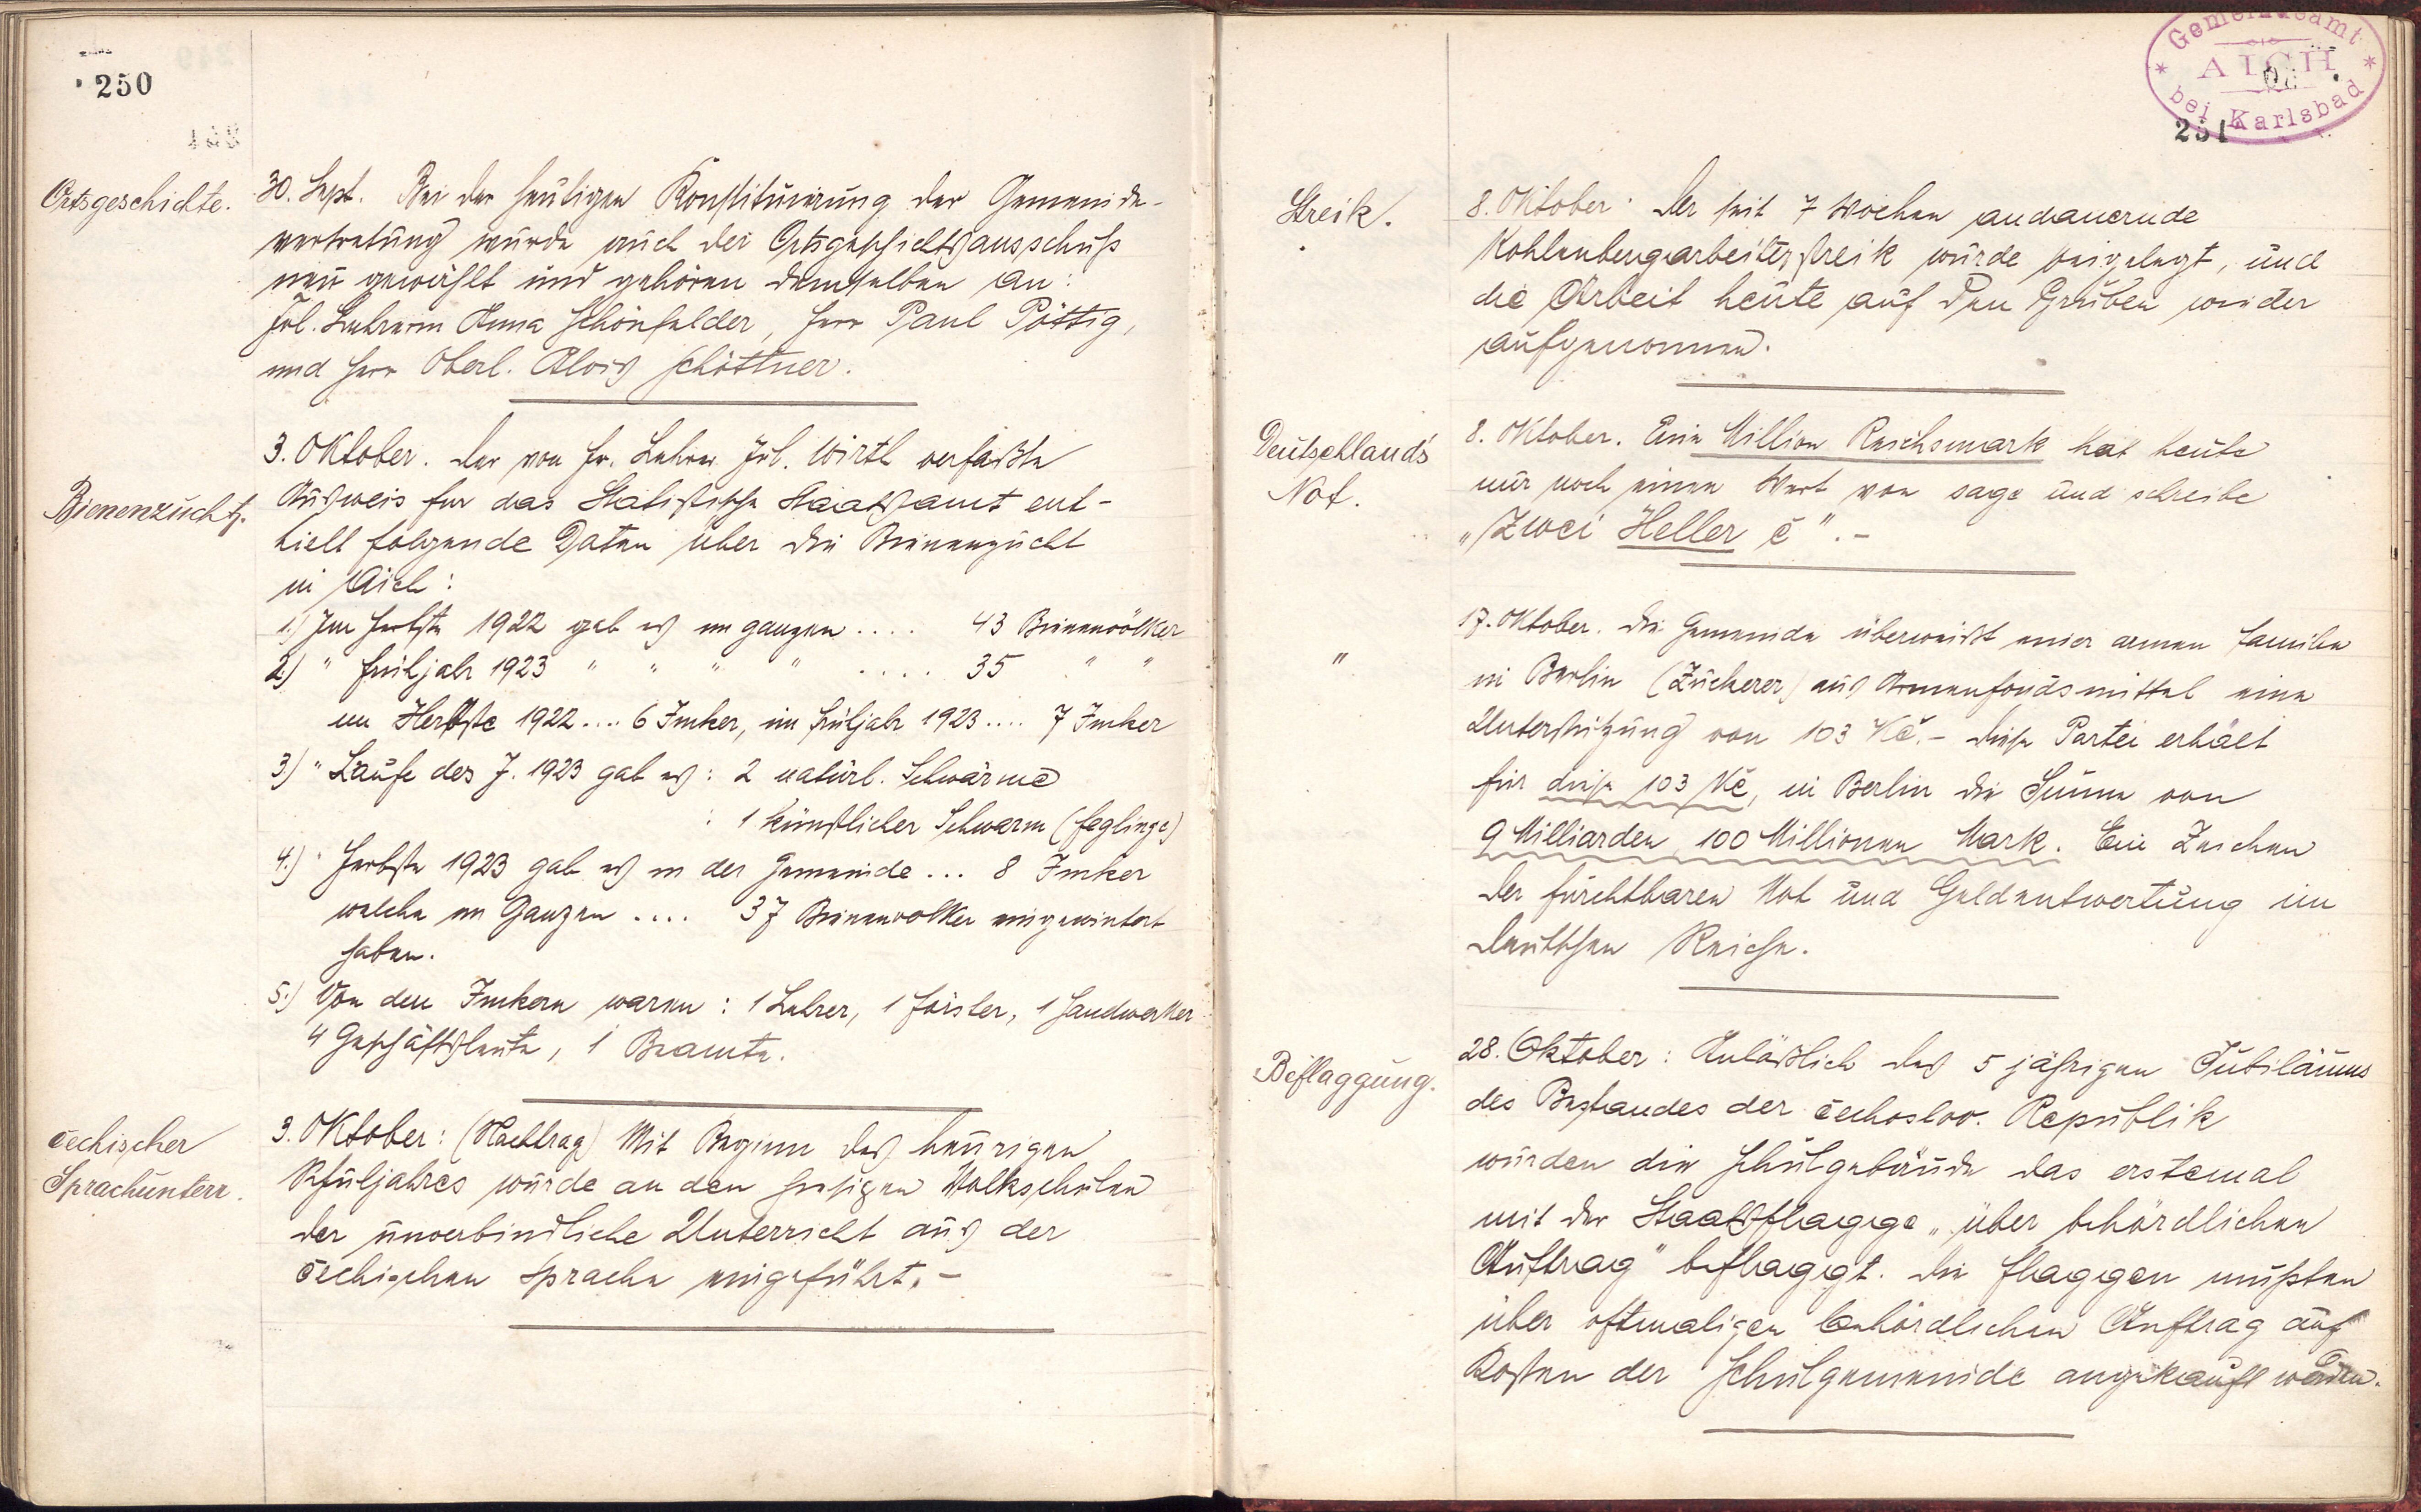 250
Ortsgeschichte.
30. Sept. Bei der heutigen Konstituierung der Gemeinde-
vertretung wurde auch der Ortsgeschichtsausschuß
neu gewählt und gehören demselben an:
Frl. Lehrerin Anna Schönfelder, Herr Paul Pöttig,
und Herr Oberl. Alois Schöttner.
Bienenzucht.
3. Oktober. Der von Hr. Lehrer Jul. Wirtl verfaßte
Ausweis für das Statistische Staatsamt ent-
hielt folgende Daten über die Bienenzucht
in Aich:
1.) Im Herbste 1922 gab es im ganzen .... 43 Bienenvölker
2.) " Frühjahr 1923 " " " " .... 35 " "
im Herbste 1922 .... 6 Imker, im Frühjahr 1923 .... 7 Imker
3.) " Laufe des J. 1923 gab es: 2 natürl. Schwärme
: 1 künstlicher Schwarm (Feglinge)
4.) " Herbste 1923 gab es in der Gemeinde ... 8 Imker
welche im Ganzen .... 37 Bienenvölker eingewintert
haben.
5.) Von den Imkern waren: 1 Lehrer, 1 Förster, 1 Handwerker
4 Geschäftsleute, 1 Beamte.
čechischer
Sprachunterr.
3. Oktober: (Nachtrag) Mit Beginn des heurigen
Schuljahres wurde an den hiesigen Volkschulen
der unverbindliche Unterricht aus der
čechischen Sprache eingeführt. -
Gemeindeamt
AICH
bei Karlsbad
251
Streik.
8. Oktober: Der seit 7 Wochen andauernde
Kohlenbergarbeiterstreik wurde beigelegt, und
die Arbeit heute auf den Gruben wieder
aufgenommen.
Deutschlands
Not.
8. Oktober. Eine Million Reichsmark hat heute
nur noch einen Wert von sage und schreibe
„Zwei Heller č". -
"
17. Oktober. Die Gemeinde überweist einer armen Familie
in Berlin (Zuckerer) aus Armenfondsmittel eine
Unterstützung von 103 Kč. - Diese Partei erhält
für diese 103 Kč, in Berlin die Summe von
9 Milliarden 100 Millionen Mark. Ein Zeichen
der furchtbaren Not und Geldentwertung im
Deutschen Reiche.
Beflaggung.
28. Oktober: Anläßlich des 5 jährigen Jubiläums
des Bestandes der čechoslov. Republik
wurden die Schulgebäude das erstemal
mit der Staatsflagge „über behördlichen
Auftrag" beflaggt. Die Flaggen mußten
über oftmaligen behördlichen Auftrag auf
Kosten der Schulgemeinde angekauft werden.